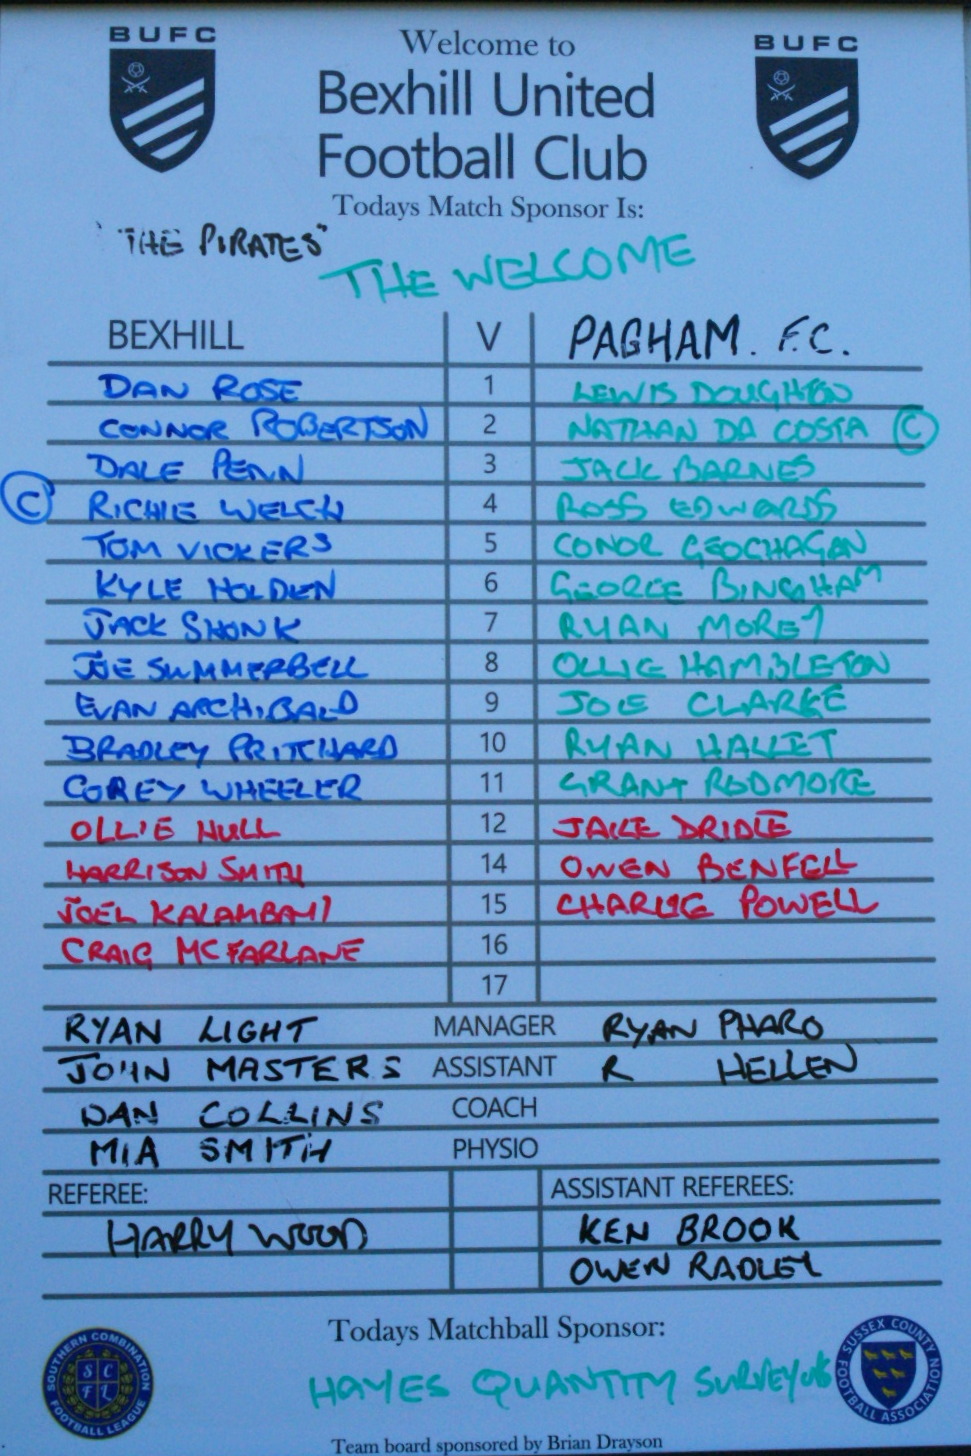 BUFC
Welcome to
BUFC
Bexhill United
Football Club
Todays Match Sponsor Is:
"THE PIRATES"
THE WELCOME
BEXHILL V PAGHAM. F.C.
DAN ROSE 1 LEWIS DOUGHTON
CONNOR ROBERTSON 2 NATHAN DA COSTA C
DALE PENN 3 JACK BARNES
C RICHIE WELCH 4 ROSS EDWARDS
TOM VICKERS 5 CONOR GEOGHAGAN
KYLE HOLDEN 6 GEORGE BINGHAM
JACK SHONK 7 RYAN MOREY
JOE SUMMERBELL 8 OLLIE HAMBLETON
EVAN ARCHIBALD 9 JOE CLARKE
BRADLEY PRITCHARD 10 RYAN HALLET
COREY WHEELER 11 GRANT RADMORE
OLLIE HULL 12 JAKE DRIDLE
HARRISON SMITH 14 OWEN BENFELL
JOEL KALAMBAYI 15 CHARLIE POWELL
CRAIG MCFARLANE 16
17
RYAN LIGHT MANAGER RYAN PHARO
JOHN MASTERS ASSISTANT R HELLEN
DAN COLLINS COACH
MIA SMITH PHYSIO
REFEREE: ASSISTANT REFEREES:
HARRY WOOD KEN BROOK
OWEN RADLEY
Todays Matchball Sponsor:
SOUTHERN COMBINATION FOOTBALL LEAGUE
SCFL
SUSSEX COUNTY FOOTBALL ASSOCIATION
HAYES QUANTITY SURVEYORS
Team board sponsored by Brian Drayson